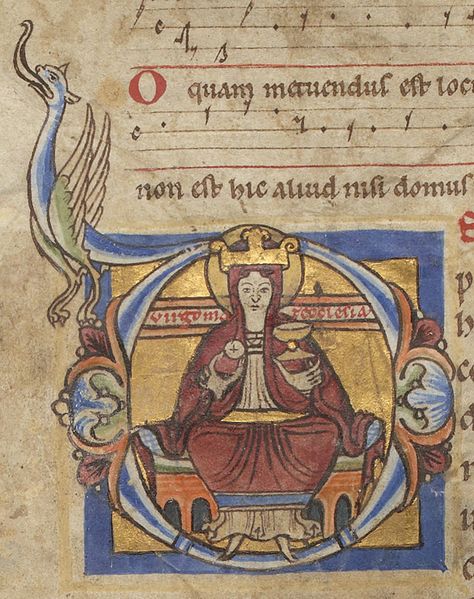 O quam metuendus est locu
non est hic aliud nisi domus
uirgo ma ecclesia